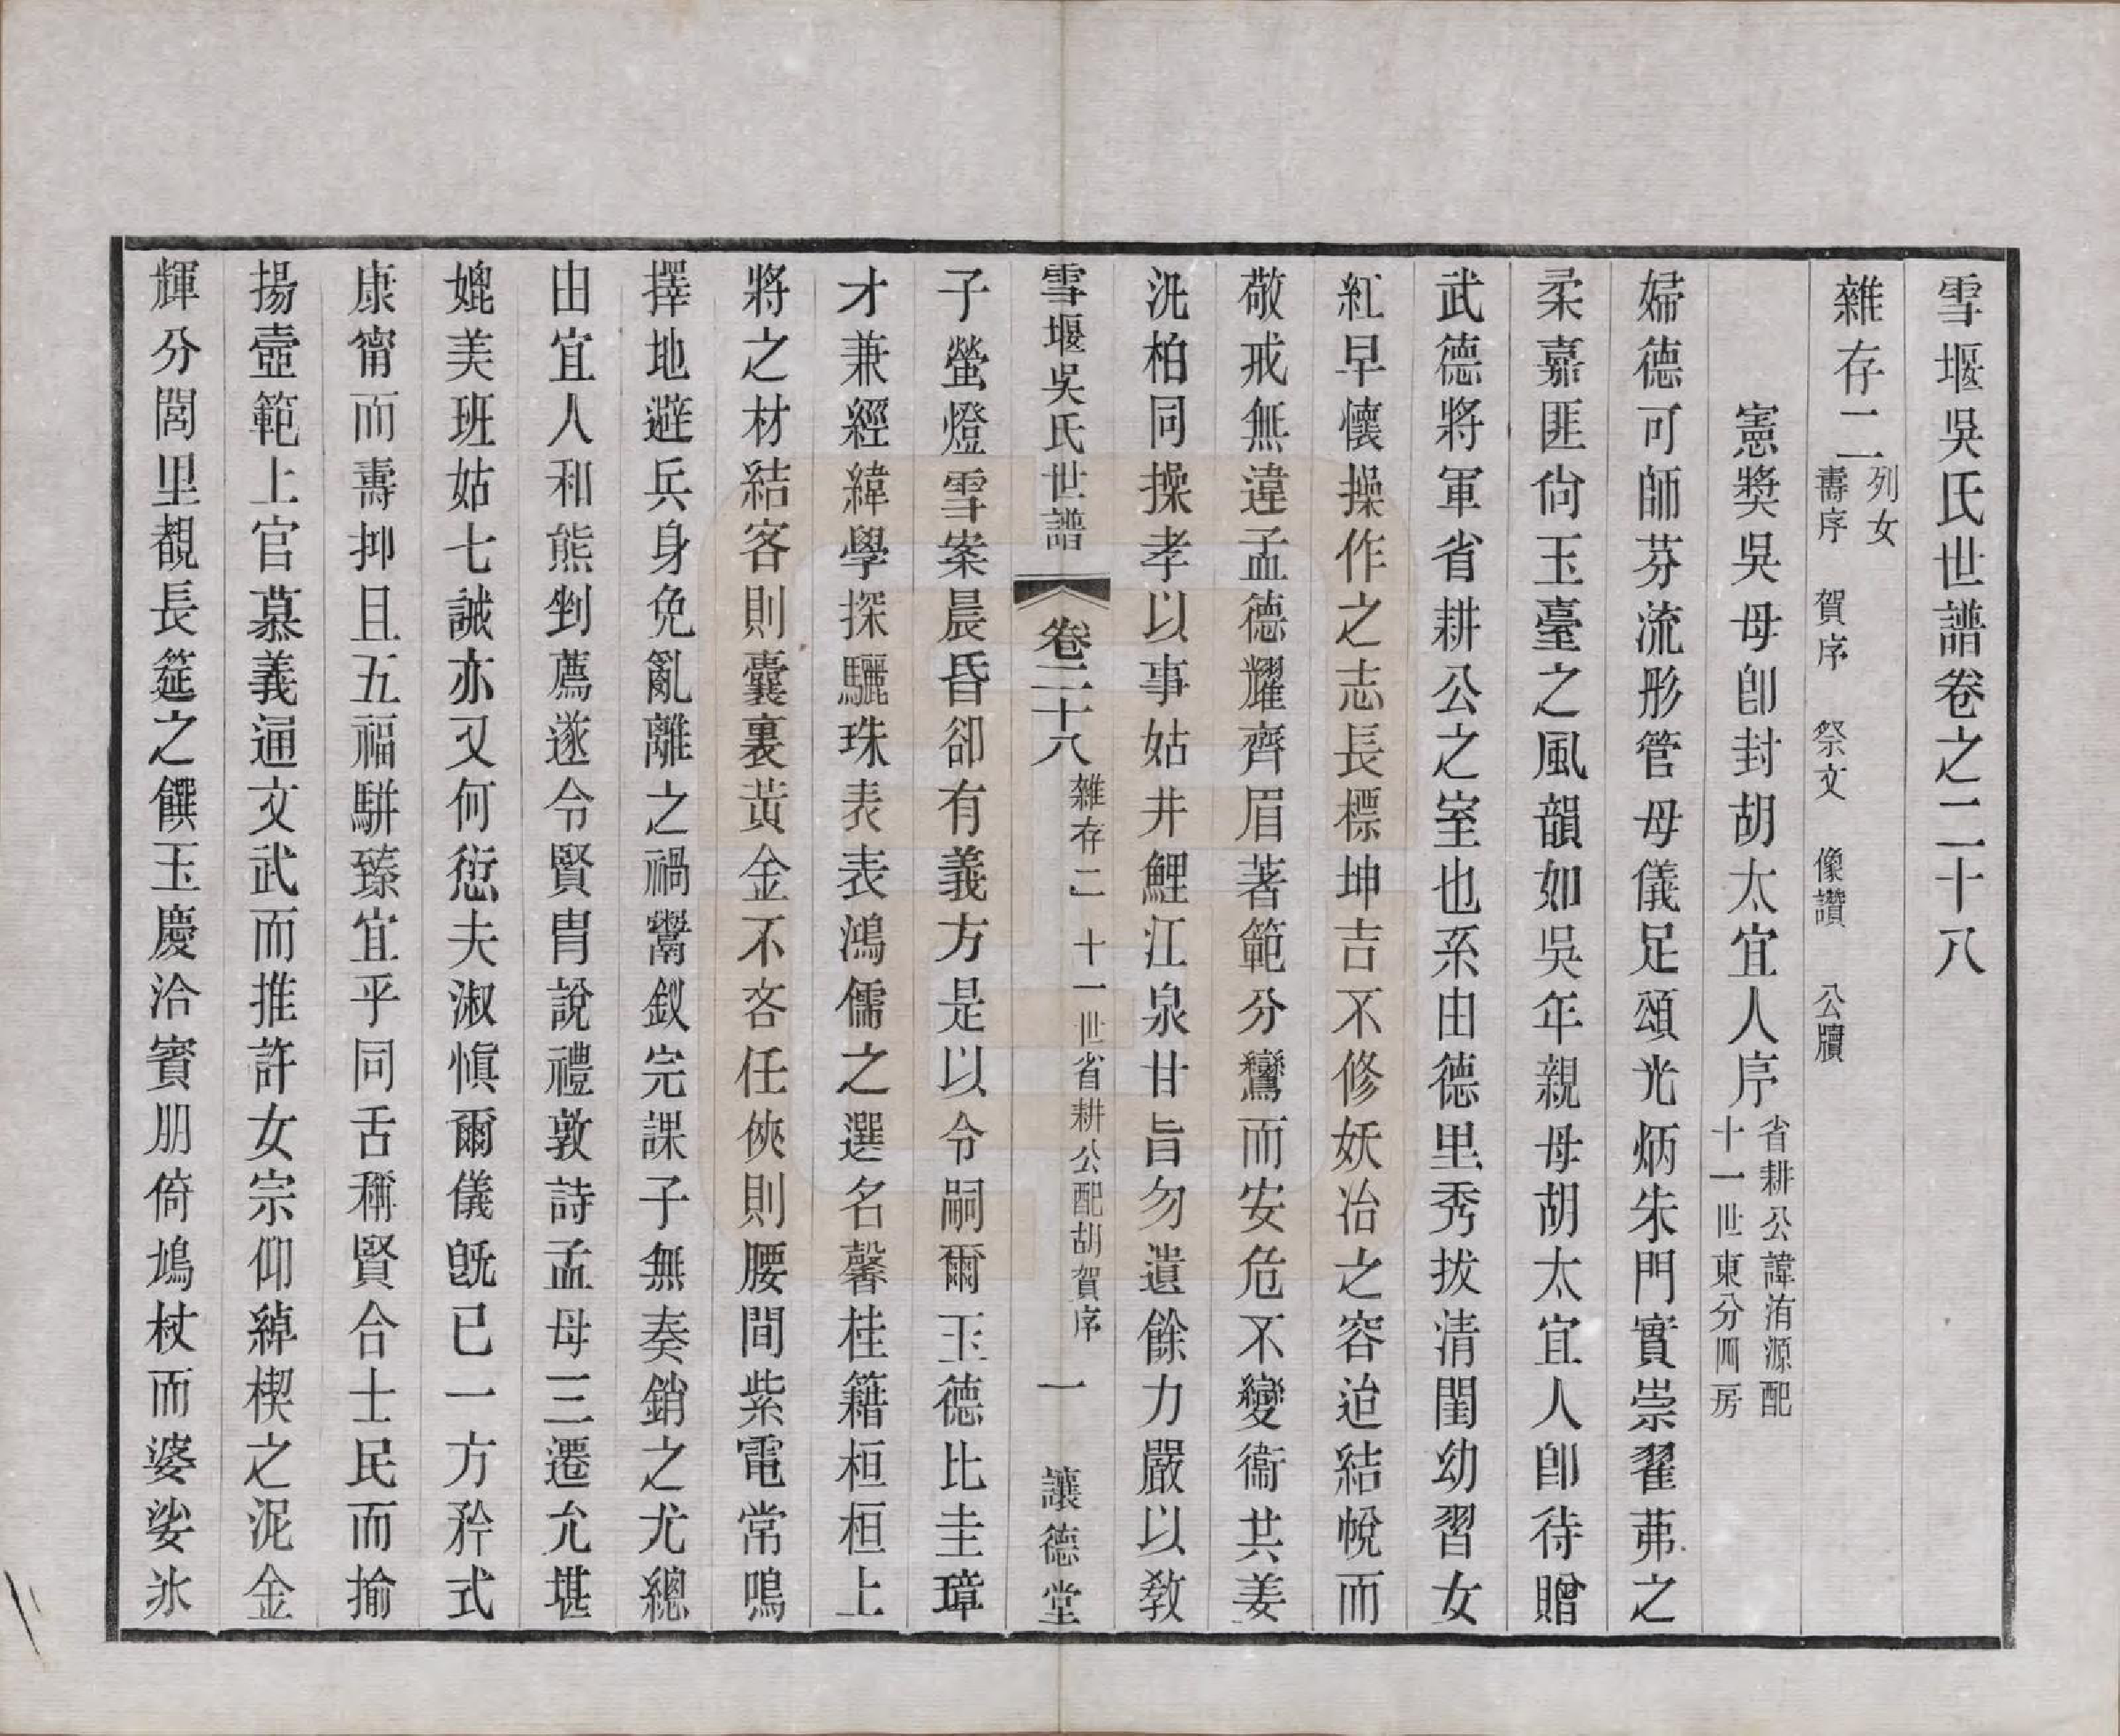 雪堰吳氏世譜卷之二十八
雜存二
列女
壽序　賀序　祭文　像讚　公牘
憲獎吳母卽封胡太宜人序
省耕公諱洧源配
十一世東分四房
婦德可師芬流彤管母儀足頌光炳朱門實崇翟茀之
柔嘉匪尙玉臺之風韻如吳年親母胡太宜人卽待贈
武德將軍省耕公之室也系由德里秀拔清閨幼習女
紅早懷操作之志長標坤吉不修妖冶之容迨結帨而
敬戒無違孟德耀齊眉著範分鸞而安危不變衞共姜
汎柏同操孝以事姑井鯉江泉甘旨勿遺餘力嚴以敎
雪堰吳氏世譜
卷二十八
雜存二　十一世省耕公配胡賀序
一
讓德堂
子螢燈雪案晨昏卻有義方是以令嗣爾玉德比圭璋
才兼經緯學探驪珠表表鴻儒之選名馨桂籍桓桓上
將之材結客則囊裏黃金不吝任俠則腰間紫電常鳴
擇地避兵身免亂離之禍鬻釵完課子無奏銷之尤總
由宜人和熊剉薦遂令賢胄說禮敦詩孟母三遷允堪
媲美班姑七誡亦又何愆夫淑愼爾儀旣已一方矜式
康甯而壽抑且五福駢臻宜乎同舌稱賢合士民而揄
揚壼範上官慕義通文武而推許女宗仰綽楔之泥金
輝分閭里覩長筵之饌玉慶洽賓朋倚鳩杖而婆娑氷